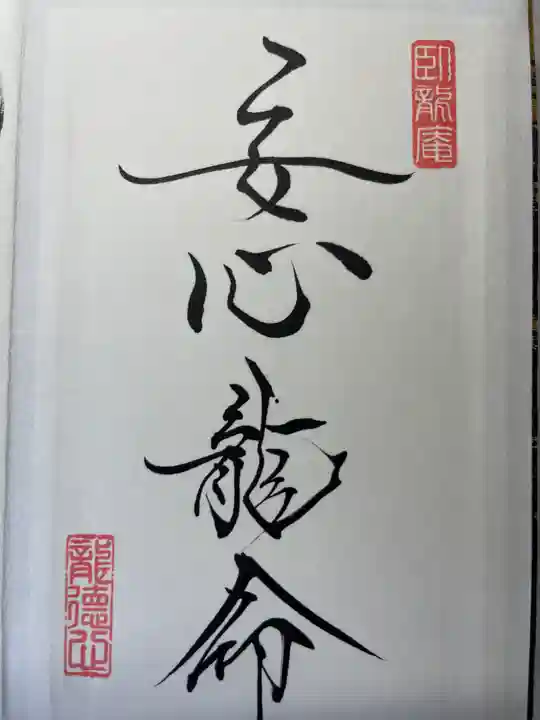 臥龍庵
安心龍命
龍德山